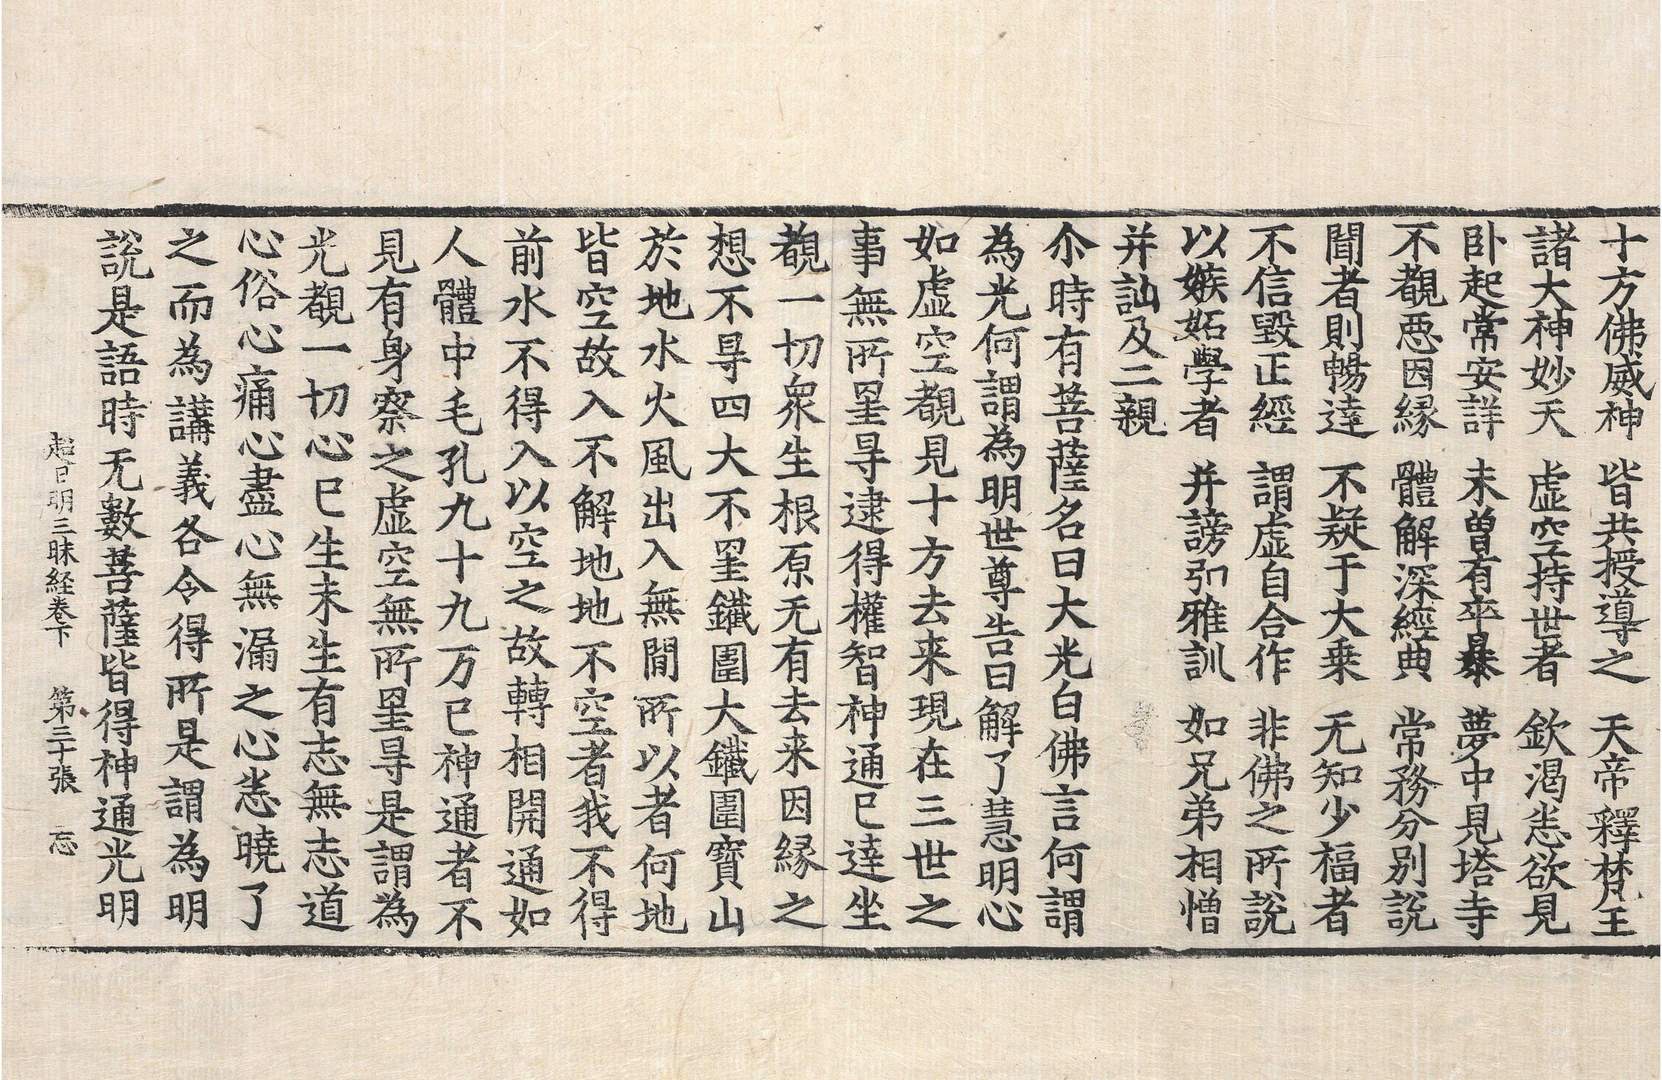 十方佛威神　皆共授導之　天帝釋梵王
諸大神妙天　虛空持世者　欽渴恙欲見
卧起常安詳　未曽有卒暴　夢中見塔寺
不覩惡因緣　體解深經典　常務分別說
聞者則暢達　不疑于大乗　无知少福者
不信毀正經　謂虛自合作　非佛之所說
以嫉妬學者　并謗毁雅訓　如兄弟相憎
并訕及二親
尒時有菩薩名曰大光白佛言何謂
為光何謂為明世尊告曰解了慧明心
如虛空覩見十方去来現在三世之
事無所罣㝵逮得權智神通已達坐
覩一切衆生根原无有去来因緣之
想不㝵四大不罣鐵圍大鐵圍寶山
於地水火風出入無閒所以者何地
皆空故入不解地地不空者我不得
前水不得入以空之故轉相開通如
人體中毛孔九十九万已神通者不
見有身察之虛空無所罣㝵是謂為
光覩一切心已生未生有志無志道
心俗心痛心盡心無漏之心恙曉了
之而為講義各令得所是謂為明
說是語時无數菩薩皆得神通光明
超日明三昧経卷下　第三十張　忘